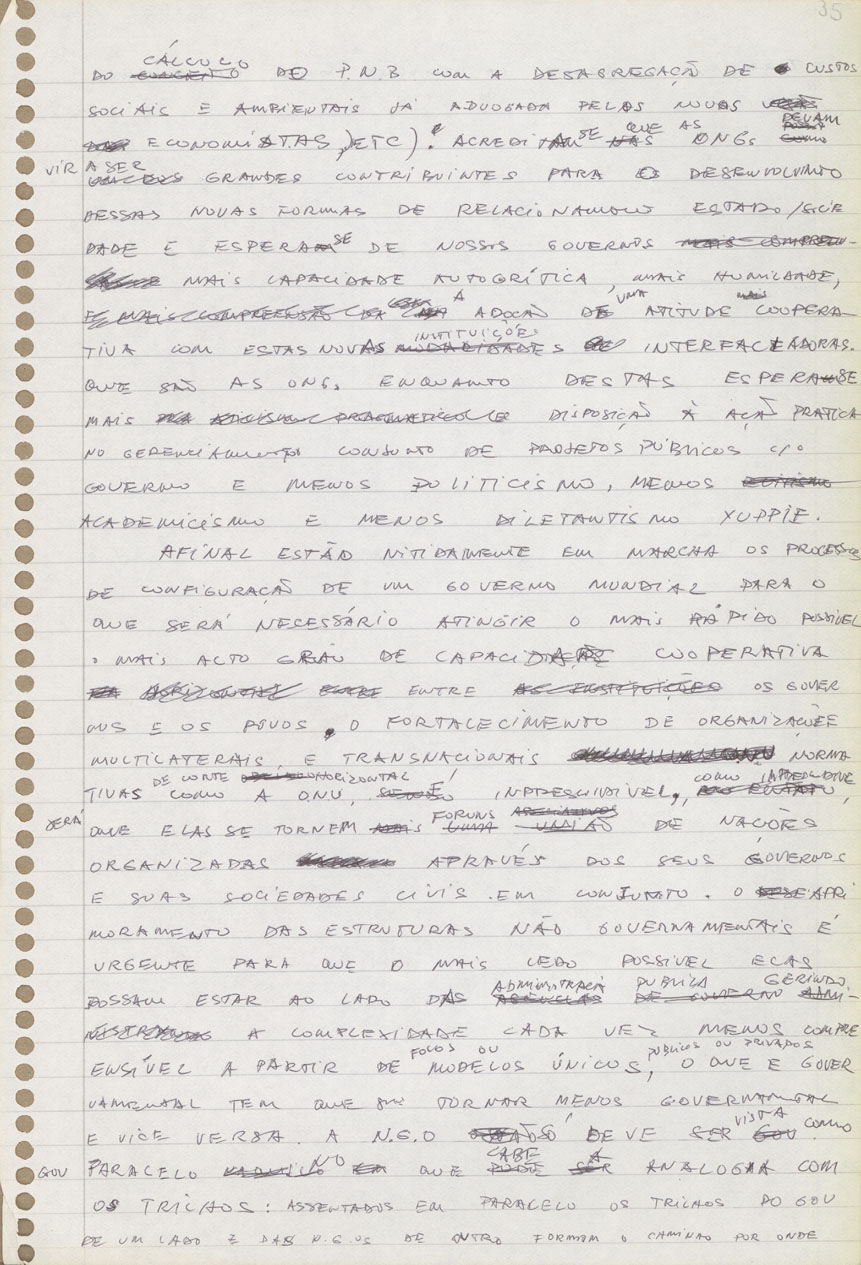 35
CÁLCULO
DO P.N.B COM A DESAGREGAÇÃO DE CUSTOS
SOCIAIS E AMBIENTAIS JÁ ADVOGADA PELOS NOVOS
DEVAM
ECONOMISTAS, ETC). ACREDITA SE QUE AS ONGs
VIR A SER
GRANDES CONTRIBUINTES PARA O DESENVOLVIMTO
DESSAS NOVAS FORMAS DE RELACIONAMENTO ESTADO/SOCIE
DADE E ESPERA SE DE NOSSOS GOVERNOS
MAIS CAPACIDADE AUTOCRÍTICA, MAIS HUMILDADE,
A ADOÇÃO DE UMA ATITUDE COOPERA
INSTITUIÇÕES
TIVA COM ESTAS NOVAS INTERFACEADORAS.
QUE SÃO AS ONGs ENQUANTO DESTAS ESPERA SE
MAIS DISPOSIÇÃO À AÇÃO PRATICA
NO GERENCIAMENTO CONJUNTO DE PROJETOS PÚBLICOS C/O
GOVERNO E MENOS POLITICISMO, MENOS
ACADEMICISMO E MENOS DILETANTISMO YUPPIE.
AFINAL ESTÃO NITIDAMENTE EM MARCHA OS PROCESSOS
DE CONFIGURAÇÃO DE UM GOVERNO MUNDIAL PARA O
QUE SERÁ NECESSÁRIO ATINGIR O MAIS RÁPIDO POSSÍVEL
O MAIS ALTO GRAU DE CAPACIDADE COOPERATIVA
ENTRE OS GOVER
NOS E OS POVOS, O FORTALECIMENTO DE ORGANIZAÇÕES
MULTILATERAIS, E TRANSNACIONAIS NORMA
DE CORTE HORIZONTAL
TIVAS COMO A ONU, É IMPRESCINDIVEL, COMO IMPRESCINDIVEL
SERÁ
QUE ELAS SE TORNEM FORUNS DE NAÇÕES
ORGANIZADAS ATRAVÉS DOS SEUS GOVERNOS
E SUAS SOCIEDADES CIVIS EM CONJUNTO. O APRI
MORAMENTO DAS ESTRUTURAS NÃO GOVERNAMENTAIS É
URGENTE PARA QUE O MAIS CEDO POSSÍVEL ELAS
ADMINISTRAÇÃ PUBLICA GERINDO
POSSAM ESTAR AO LADO DAS
A COMPLEXIDADE CADA VEZ MENOS COMPRE
FOCOS OU PUBLICOS OU PRIVADOS
ENSÍVEL A PARTIR DE MODELOS ÚNICOS, O QUE É GOVER
NAMENTAL TEM QUE SE TORNAR MENOS GOVERNAMENTAL
E VICE VERSA. A N.G.O SÓ DEVE SER VISTA COMO
GOV
PARALELO NO QUE CABE A ANALOGIA COM
OS TRILHOS: ASSENTADOS EM PARALELO OS TRILHOS DO GOV
DE UM LADO E DAS N.G.OS DE OUTRO FORMAM O CAMINHO POR ONDE